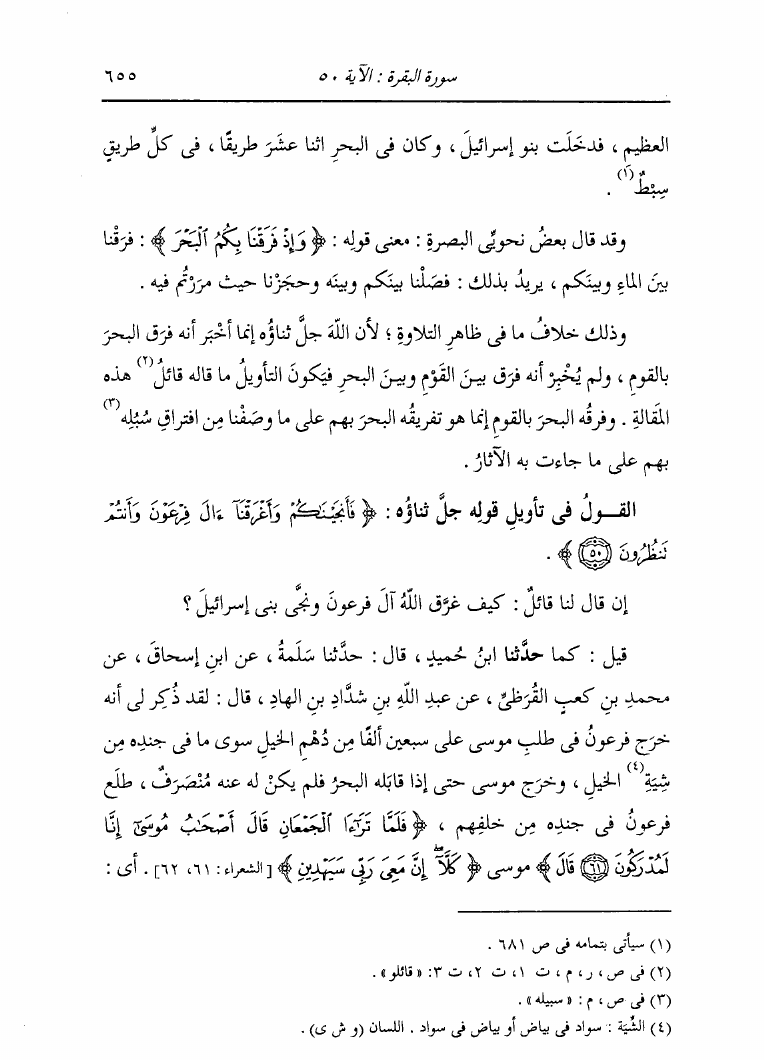 سورة البقرة : الآية ٥٠
٦٥٥
العظيمِ ، فدخَلَت بنو إسرائيلَ ، وكان فى البحرِ اثنا عشَرَ طريقًا ، فى كلِّ طريقٍ
سِبْطٌ(١) .
وقد قال بعضُ نحويِّى البصرةِ : معنى قولِه : ﴿ وَإِذْ فَرَقْنَا بِكُمُ ٱلْبَحْرَ ﴾ : فرَقْنا
بينَ الماءِ وبينَكم ، يريدُ بذلك : فصَلْنا بينَكم وبينَه وحجَزْنا حيث مرَرْتُم فيه .
وذلك خلافُ ما فى ظاهرِ التلاوةِ ؛ لأن اللّهَ جلَّ ثناؤُه إنما أخْبَر أنه فرَق البحرَ
بالقومِ ، ولم يُخْبِرْ أنه فرَق بيـنَ القَوْمِ وبيـنَ البحرِ فيَكونَ التأويلُ ما قاله قائلُ(٢) هذه
المَقالةِ . وفرقُه البحرَ بالقومِ إنما هو تفريقُه البحرَ بهم على ما وصَفْنا مِن افتراقِ سُبُلِه(٣)
بهم على ما جاءت به الآثارُ .
القــولُ فى تأويلِ قولِه جلَّ ثناؤُه : ﴿ فَأَنجَيْنَـٰكُمْ وَأَغْرَقْنَآ ءَالَ فِرْعَوْنَ وَأَنتُمْ
تَنظُرُونَ ﴿٥٠﴾ ﴾ .
إن قال لنا قائلٌ : كيف غرَّق اللّهُ آلَ فرعونَ ونجَّى بنى إسرائيلَ ؟
قيل : كما حدَّثنا ابنُ حُميدٍ ، قال : حدَّثنا سَلَمةُ ، عن ابنِ إسحاقَ ، عن
محمدِ بنِ كعبٍ القُرَظىِّ ، عن عبدِ اللّهِ بنِ شدَّادِ بنِ الهادِ ، قال : لقد ذُكِر لى أنه
خرَج فرعونُ فى طلبِ موسى على سبعين ألفًا مِن دُهْمِ الخيلِ سوى ما فى جندِه مِن
شِيَةِ(٤) الخيلِ ، وخرَج موسى حتى إذا قابَله البحرُ فلم يكنْ له عنه مُنْصَرَفٌ ، طلَع
فرعونُ فى جندِه مِن خلفِهم ، ﴿ فَلَمَّا تَرَٰٓءَا ٱلْجَمْعَانِ قَالَ أَصْحَـٰبُ مُوسَىٰٓ إِنَّا
لَمُدْرَكُونَ ﴿٦١﴾ قَالَ ﴾ موسى ﴿ كَلَّآ ۖ إِنَّ مَعِىَ رَبِّى سَيَهْدِينِ ﴾ [الشعراء : ٦١، ٦٢] . أى :
(١) سيأتى بتمامه فى ص ٦٨١ .
(٢) فى ص ، ر ، م ، ت ١، ت ٢، ت ٣: « قائلو » .
(٣) فى ص ، م : « سبيله » .
(٤) الشِّيَة : سواد فى بياض أو بياض فى سواد . اللسان (و ش ى) .